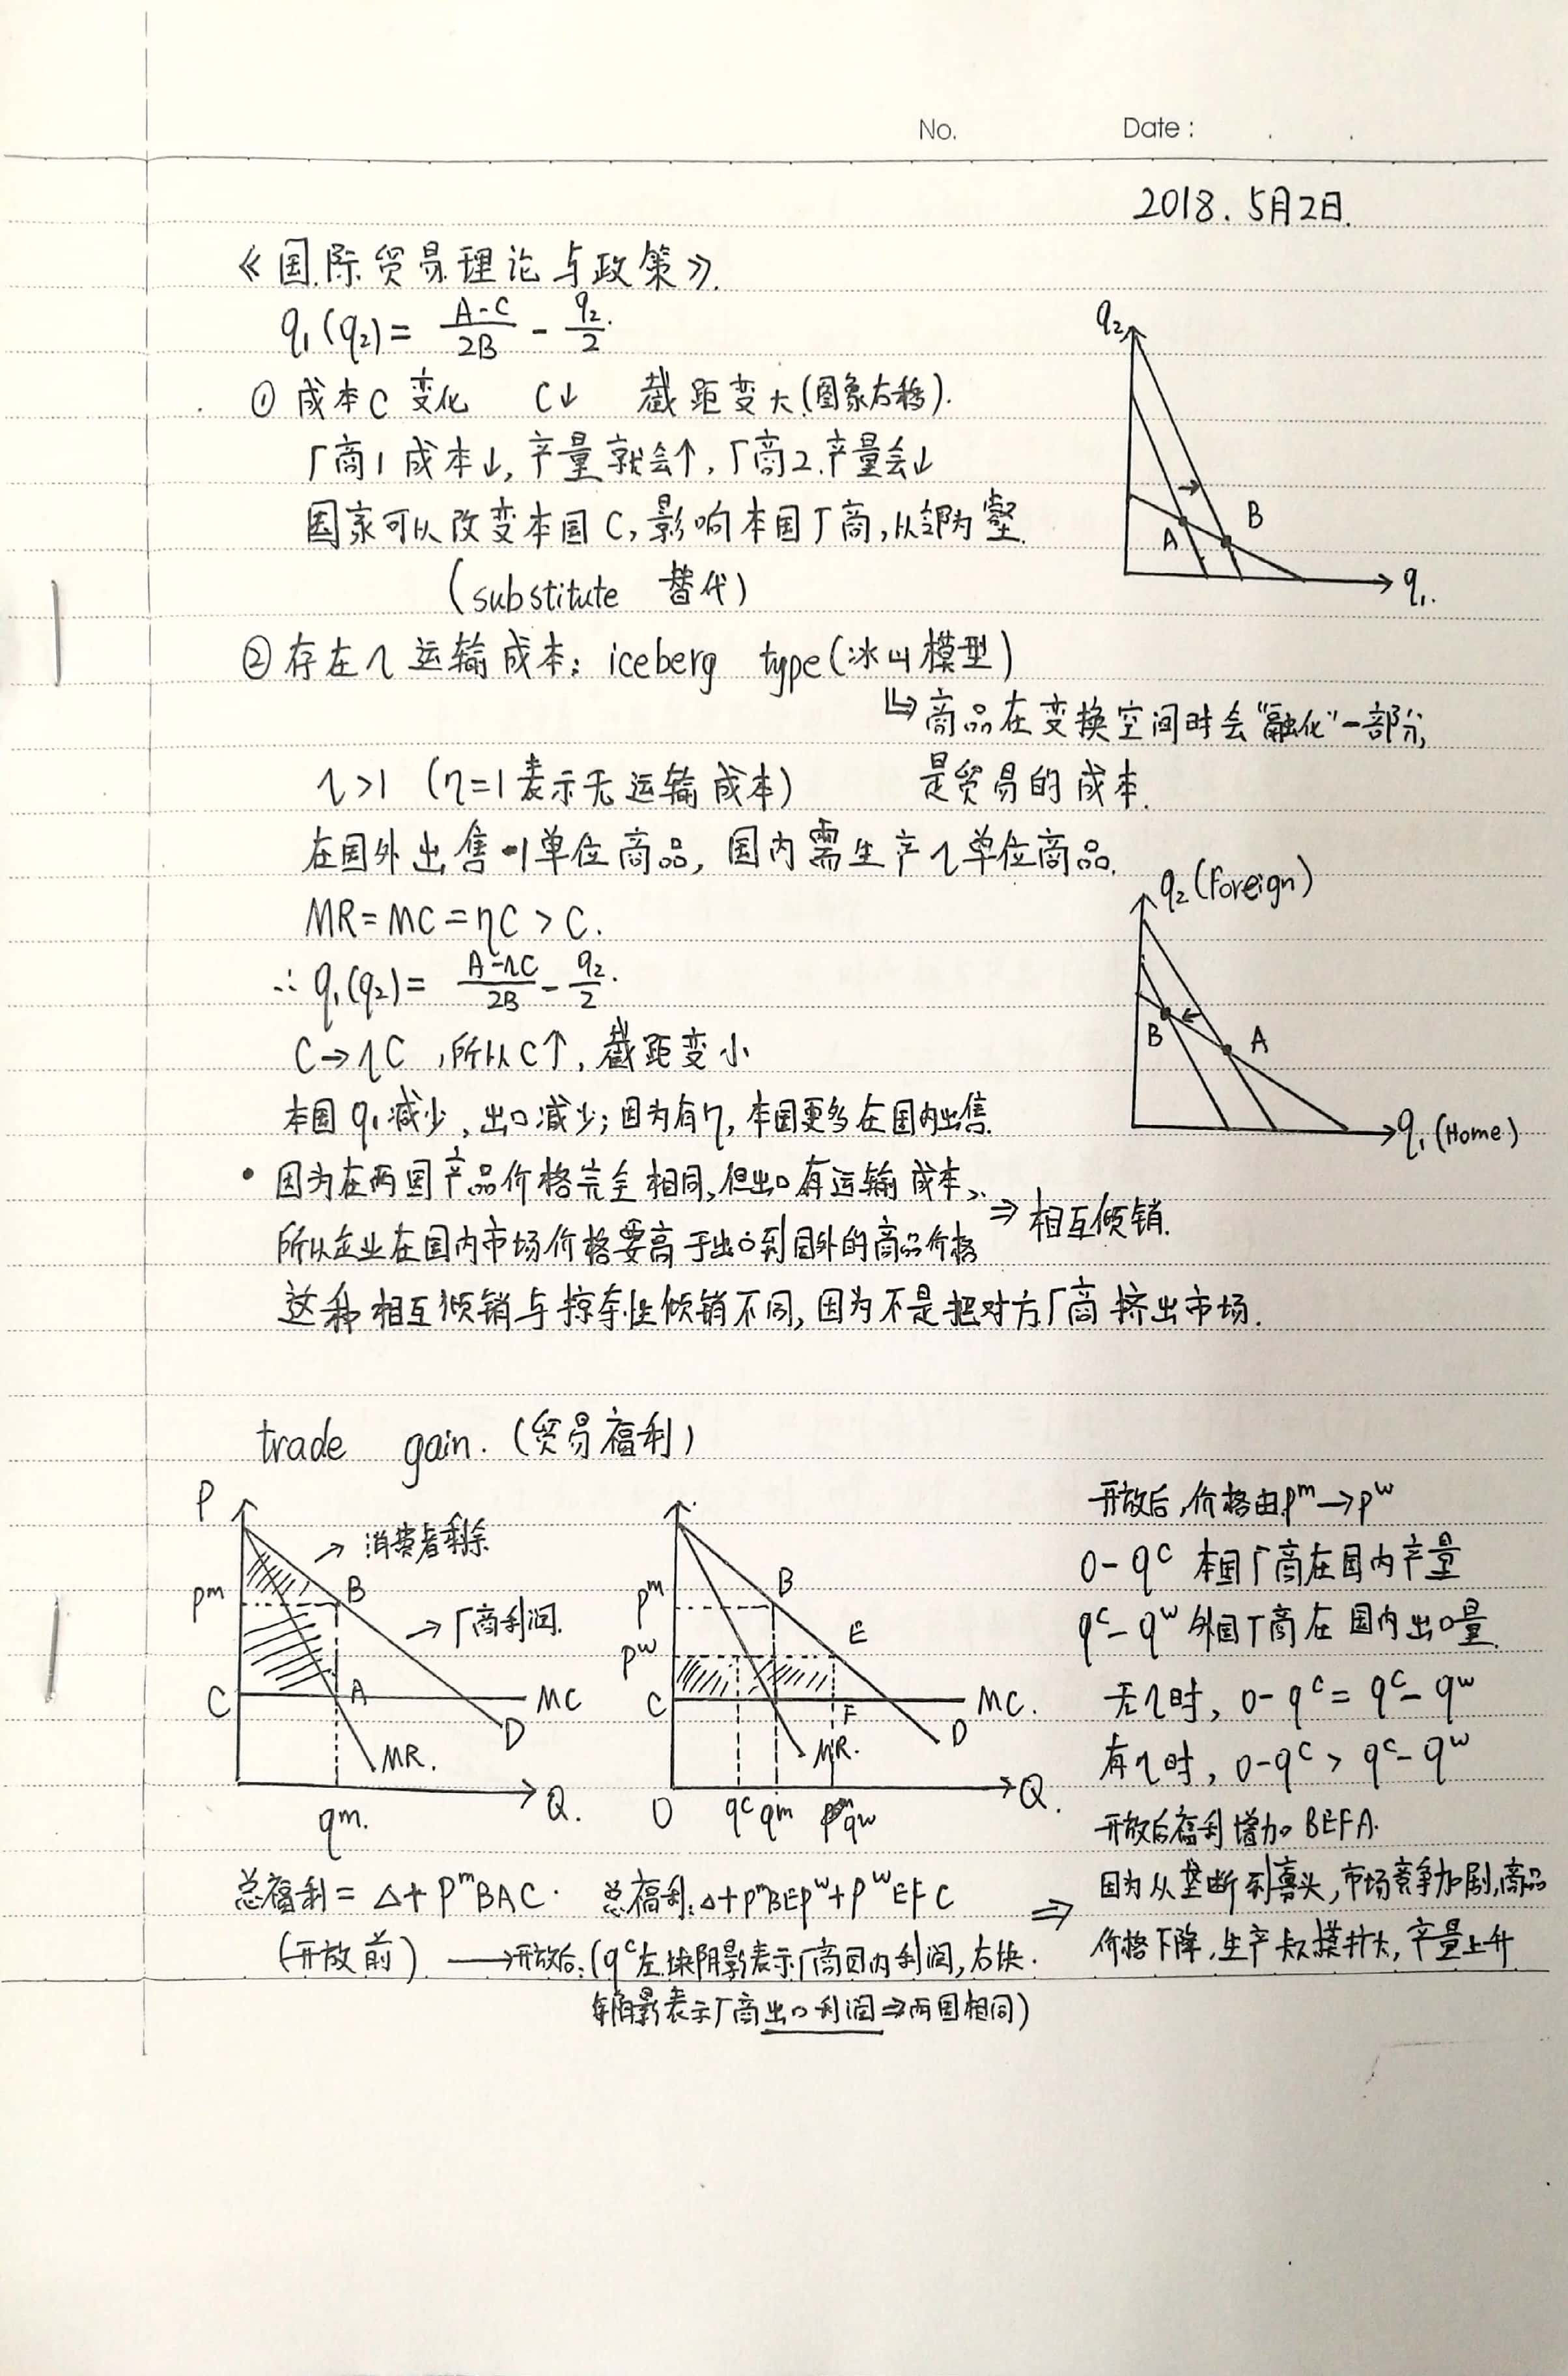 No. Date :
2018. 5月2日.
《国际贸易理论与政策》.
q₁(q₂) = (A-C)/2B - q₂/2.
① 成本C变化 C↓ 截距变大(图象右移).
厂商1成本↓, 产量就会↑, 厂商2产量会↓
国家可以改变本国C, 影响本国厂商, 以邻为壑.
(substitute 替代)
q₂
B
A
q₁.
② 存在η运输成本: iceberg type (冰山模型)
↳ 商品在变换空间时会“融化”一部分,
是贸易的成本.
η>1 (η=1表示无运输成本)
在国外出售1单位商品, 国内需生产η单位商品.
MR = MC = ηC > C.
∴ q₁(q₂) = (A-ηC)/2B - q₂/2.
C→ηC, 所以C↑, 截距变小
本国q₁减少, 出口减少; 因为有η, 本国更多在国内出售.
q₂ (Foreign)
B A
q₁ (Home)
• 因为在两国产品价格完全相同, 但出口有运输成本,
所以企业在国内市场价格要高于出口到国外的商品价格 ⇒ 相互倾销.
这种相互倾销与掠夺性倾销不同, 因为不是把对方厂商挤出市场.
trade gain. (贸易福利)
P
→ 消费者剩余
pᵐ B
→ 厂商利润.
C A MC
D
MR.
qᵐ. Q.
pᵐ B
pʷ E
C F MC.
MR. D
O qᶜ qᵐ qʷ Q.
开放后, 价格由pᵐ→pʷ
0-qᶜ 本国厂商在国内产量
qᶜ-qʷ 外国厂商在国内出口量.
无η时, 0-qᶜ = qᶜ-qʷ
有η时, 0-qᶜ > qᶜ-qʷ
开放后福利增加 BEFA.
因为从垄断到寡头, 市场竞争加剧, 商品
价格下降, 生产规模扩大, 产量上升
总福利 = △+PᵐBAC. 总福利: △+PᵐBEPʷ+PʷEFC ⇒
(开放前) → 开放后: (qᶜ左块阴影表示厂商国内利润, 右块
阴影表示厂商出口利润⇒两国相同)